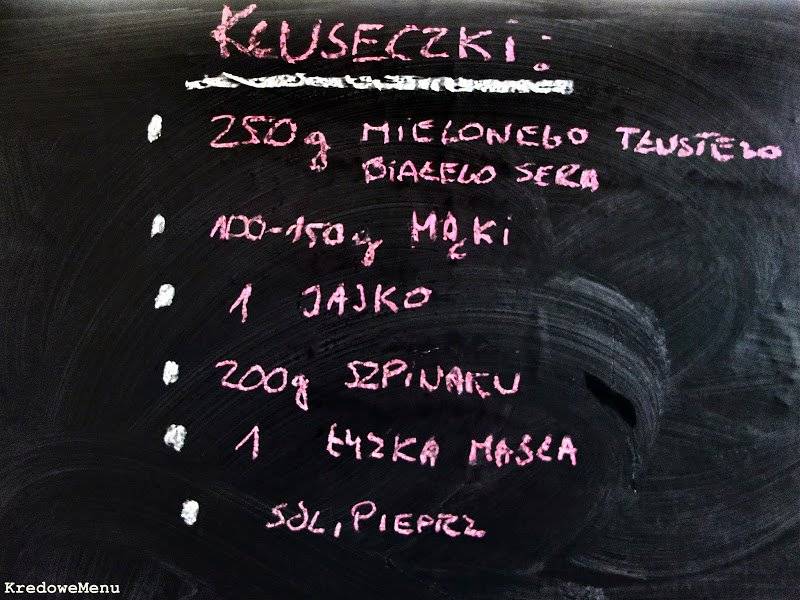 KŁUSECZKI:
250g MIELONEGO TŁUSTEGO
BIAŁEGO SERA
100-150g MĄKI
1 JAJKO
200g SZPINAKU
1 ŁYŻKA MASŁA
SÓL, PIEPRZ
KredoweMenu